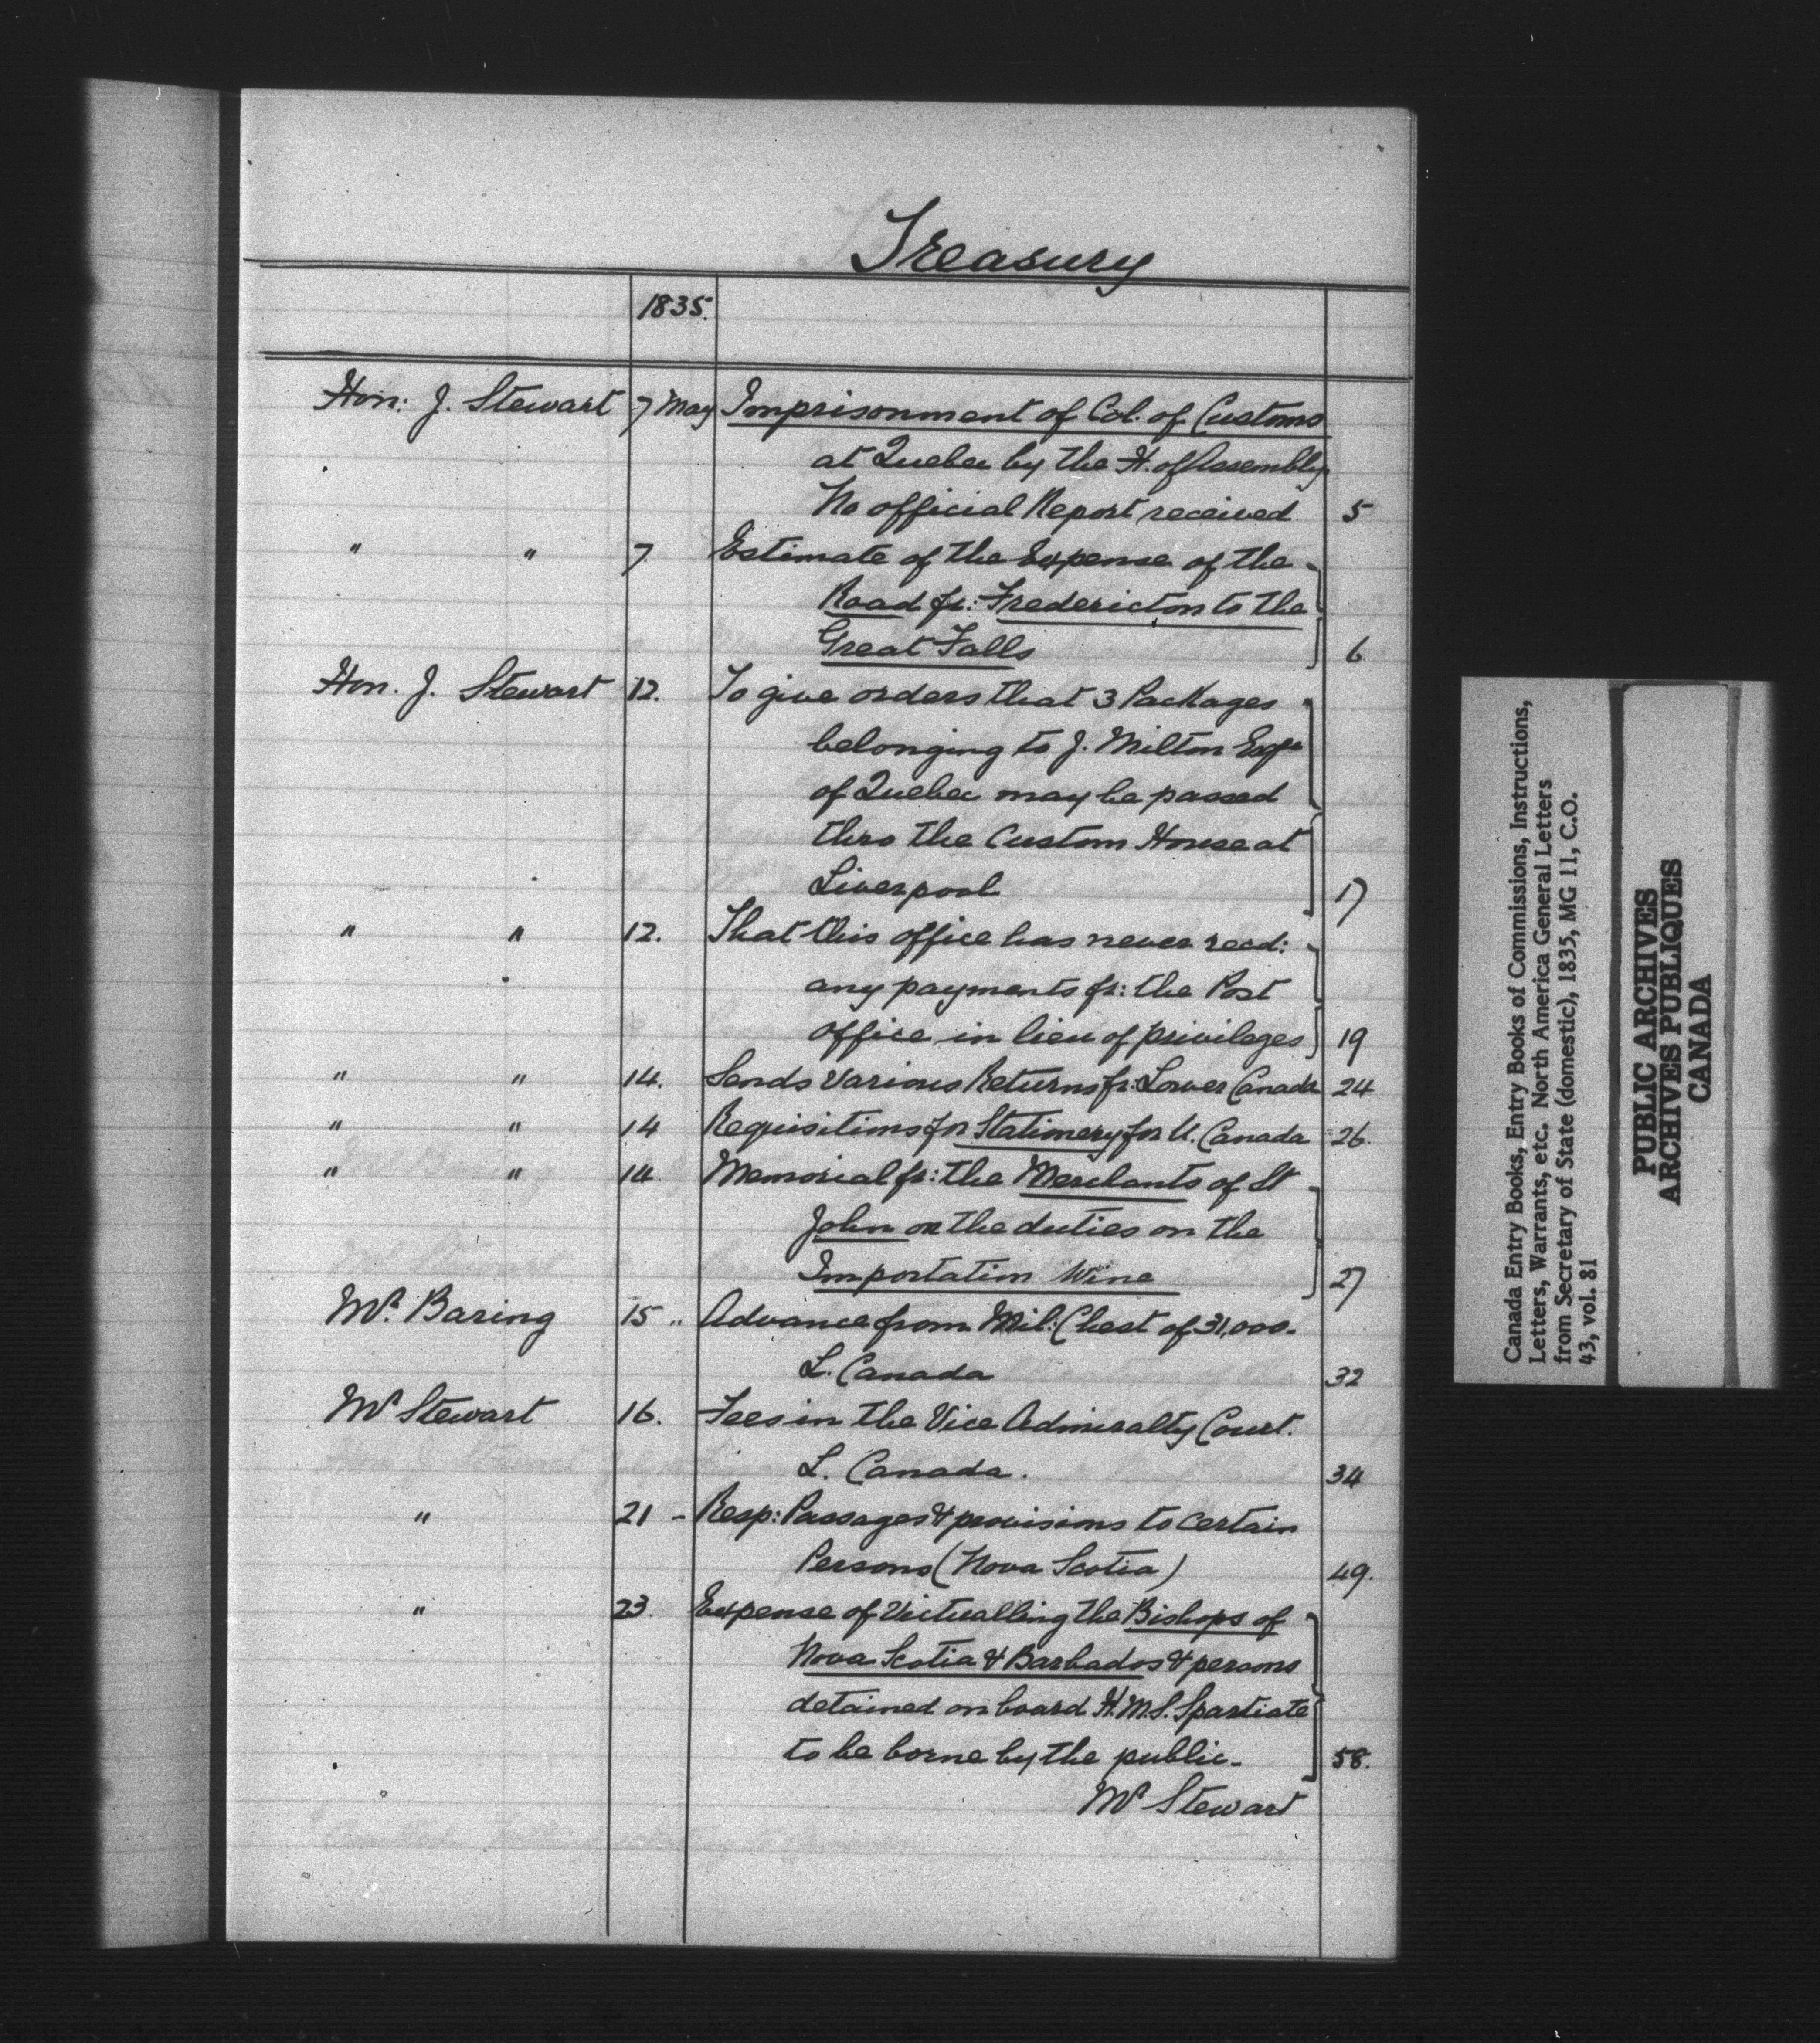 Treasury
1835.
Hon: J. Stewart 7 May Imprisonment of Col. of Customs
at Quebec by the H. of Assembly
No official Report received 5
" " 7. Estimate of the Expense of the
Road fr: Fredericton to the
Great Falls 6
Hon. J. Stewart 12. To give orders that 3 Packages
belonging to J. Milton Esqre
of Quebec may be passed
thro the Custom House at
Liverpool 17
" " 12. That this office has never recd:
any payments fr: the Post
office in lieu of privileges 19
" " 14. Sends various Returns fr: Lower Canada 24
" " 14 Requisitions for Stationery for U. Canada 26.
" " 14 Memorial fr: the Merchants of St
John on the duties on the
Importation Wine 27
Mr. Baring 15 " Advance from Mil: Chest of 31,000.
L. Canada 32
Mr Stewart 16. Fees in the Vice Admiralty Court.
L. Canada. 34
" 21 - Resp: Passages & provisions to certain
Persons (Nova Scotia) 49.
" 23. Expense of Victualling the Bishops of
Nova Scotia & Barbados & persons
detained on board H.M.S. Spartiate
to be borne by the public. 58.
Mr Stewart
Canada Entry Books, Entry Books of Commissions, Instructions,
Letters, Warrants, etc. North America General Letters
from Secretary of State (domestic), 1835, MG 11, C.O.
43, vol. 81
PUBLIC ARCHIVES
ARCHIVES PUBLIQUES
CANADA